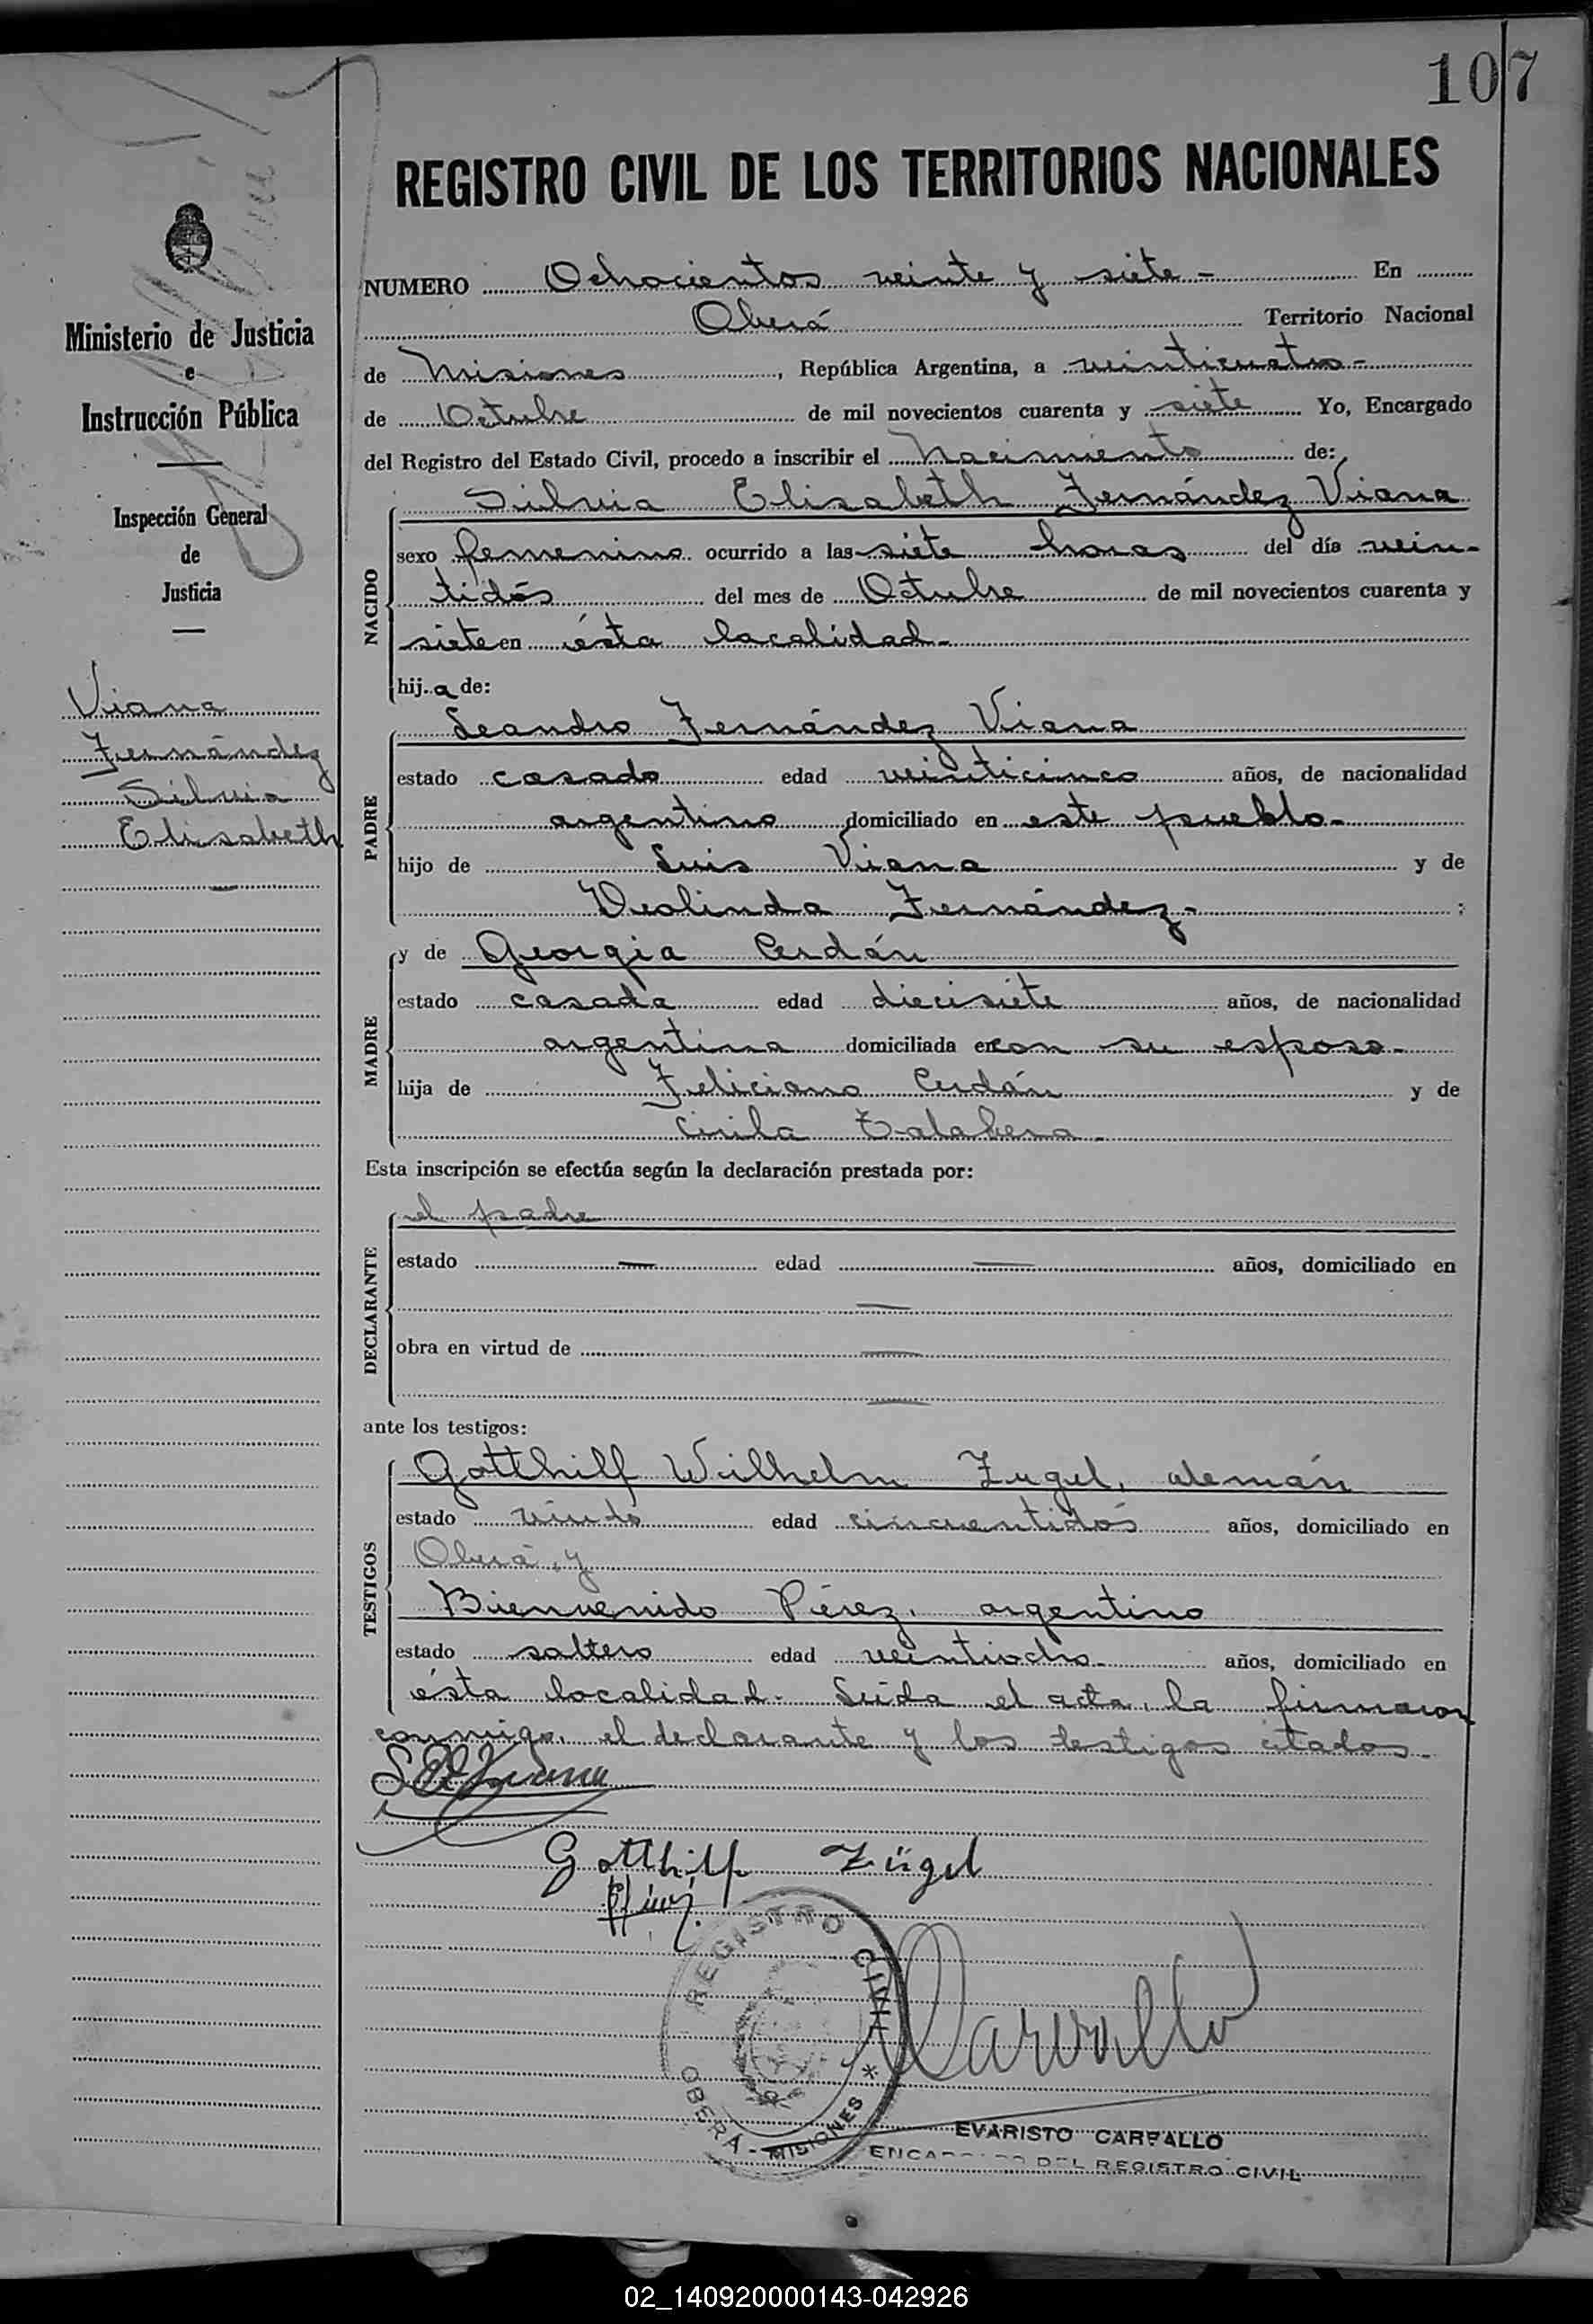 107
REGISTRO CIVIL DE LOS TERRITORIOS NACIONALES
Ministerio de Justicia
e
Instrucción Pública
Inspección General
de
Justicia
Viana
Fernández
Silvia
Elisabeth
NUMERO Ochocientos veinte y siete - En
Oberá Territorio Nacional
de Misiones, República Argentina, a veinticuatro -
de Octubre de mil novecientos cuarenta y siete Yo, Encargado
del Registro del Estado Civil, procedo a inscribir el Nacimiento de:
NACIDO
Silvia Elisabeth Fernández Viana
sexo femenino ocurrido a las siete horas del día vein-
tidós del mes de Octubre de mil novecientos cuarenta y
siete en ésta localidad.-
hija de:
PADRE
Leandro Fernández Viana
estado casado edad veinticinco años, de nacionalidad
argentino domiciliado en este pueblo.-
hijo de Luis Viana y de
Deolinda Fernández- ;
MADRE
y de Georgia Cerdán
estado casada edad diecisiete años, de nacionalidad
argentina domiciliada en con su esposo.-
hija de Feliciano Cerdán y de
Cirila Talabera.
Esta inscripción se efectúa según la declaración prestada por:
DECLARANTE
el padre
estado — edad — años, domiciliado en
—
obra en virtud de —
—
ante los testigos:
TESTIGOS
Gotthilf Wilhelm Zugel, alemán
estado viudo edad cincuentidós años, domiciliado en
Oberá, y
Bienvenido Pérez, argentino
estado soltero edad veintiocho. años, domiciliado en
ésta localidad.- Leída el acta, la firmaron
conmigo, el declarante y los testigos citados.-
Gotthilf Zügel
REGISTRO CIVIL
OBERÁ - MISIONES *
Carvallo
EVARISTO CARVALLO
ENCARGADO DEL REGISTRO CIVIL
02_140920000143-042926